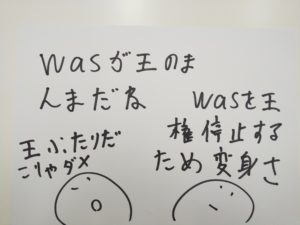 wasが王のま
んまだな
王ふたりだ
こりゃダメ
wasを王
権停止する
ため変身さ